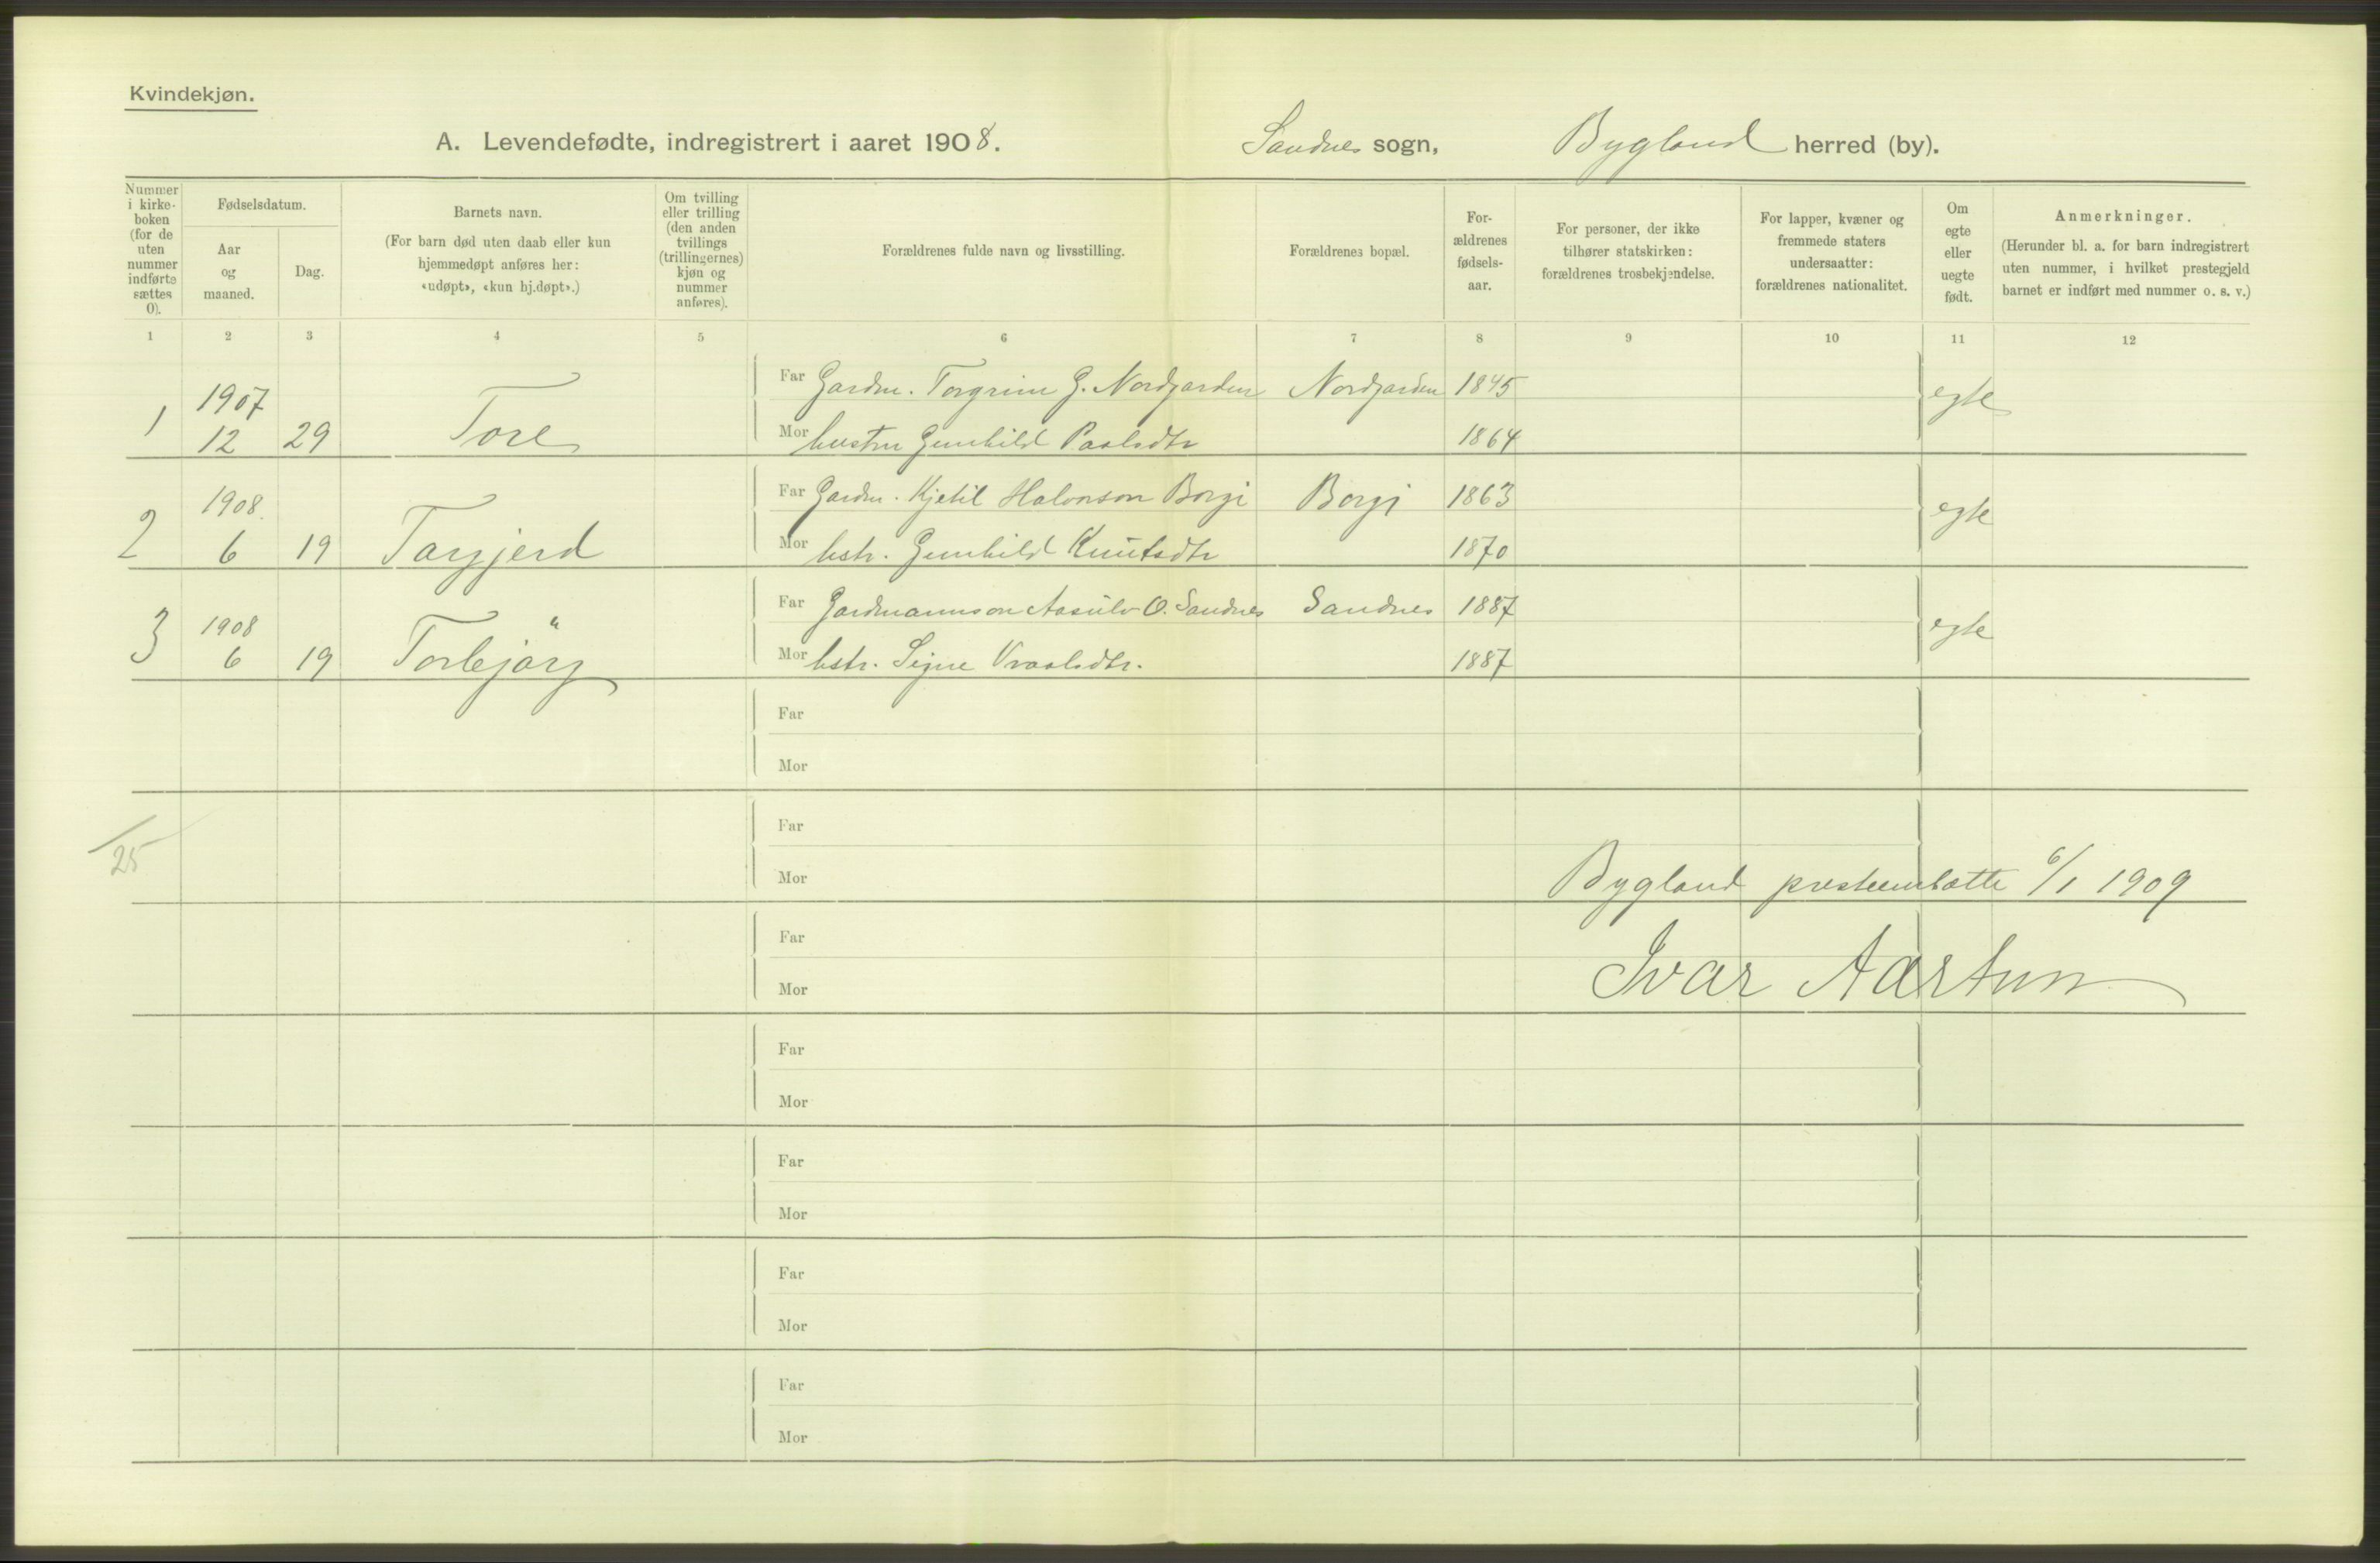 Kvindekjøn.
A. Levendefødte, indregistrert i aaret 1908. Sandnes sogn, Bygland herred (by).
Nummer i kirkeboken (for de uten nummer indførte sættes 0).
Fødselsdatum.
Aar og maaned.
Dag.
Barnets navn.
(For barn død uten daab eller kun hjemmedøpt anføres her: «udøpt», «kun hj.døpt».)
Om tvilling eller trilling (den anden tvillings (trillingernes) kjøn og nummer anføres).
Forældrenes fulde navn og livsstilling.
Forældrenes bopæl.
Forældrenes fødselsaar.
For personer, der ikke tilhører statskirken: forældrenes trosbekjendelse.
For lapper, kvæner og fremmede staters undersaatter: forældrenes nationalitet.
Om egte eller uegte født.
Anmerkninger.
(Herunder bl. a. for barn indregistrert uten nummer, i hvilket prestegjeld barnet er indført med nummer o. s. v.)
1 2 3 4 5 6 7 8 9 10 11 12
1 1907 12 29 Tore
Far Gardm. Torgrim G. Nordgarden Nordgarden 1845 egte
Mor hustru Gunhild Paalsdtr 1864
2 1908. 6 19 Targjerd
Far Gardm. Kjetil Halvorson Borgi Borgi 1863 egte
Mor hstr. Gunhild Knutsdtr 1870
3 1908 6 19 Torbjörg
Far Gardmannson Aasulv O. Sandnes Sandnes 1887 egte
Mor hstr. Signe Vraalsdtr. 1887
Far
Mor
Far
25
Mor
Bygland presteembætte 6/1 1909
Far
Ivar Aartun
Mor
Far
Mor
Far
Mor
Far
Mor
Far
Mor